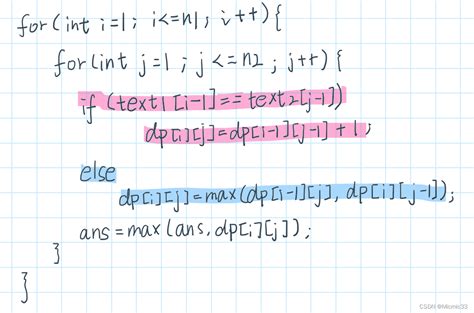 for(int i=1; i<=n1; i++){
for(int j=1; j<=n2; j++){
if (text1[i-1]==text2[j-1])
dp[i][j]=dp[i-1][j-1]+1;
else
dp[i][j]=max(dp[i-1][j], dp[i][j-1]);
ans=max(ans,dp[i][j]);
}
}